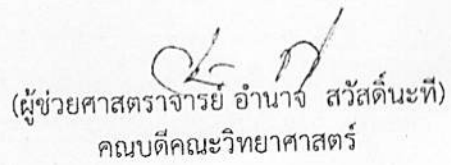 (ผู้ช่วยศาสตราจารย์ อำนาจ สวัสดิ์นะที)
คณบดีคณะวิทยาศาสตร์